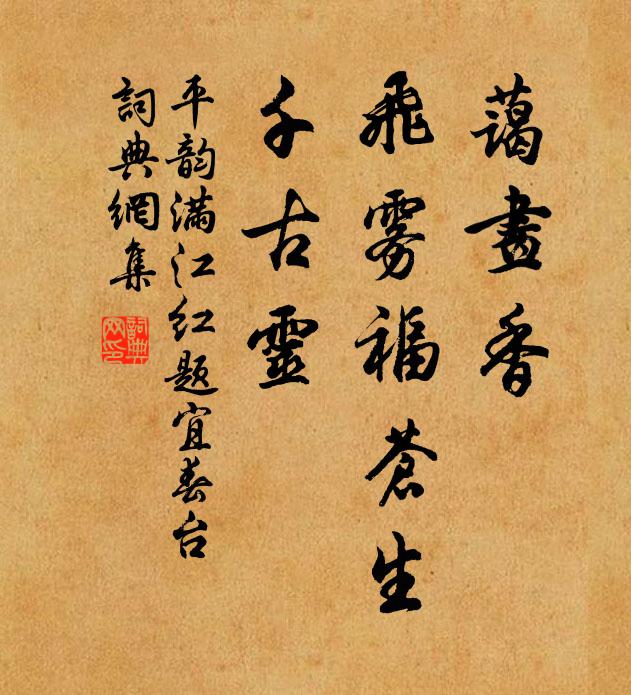 藹晝香
飛雾福蒼生
千古靈
平韵满江红题宜春台
詞典網集
詞典网印